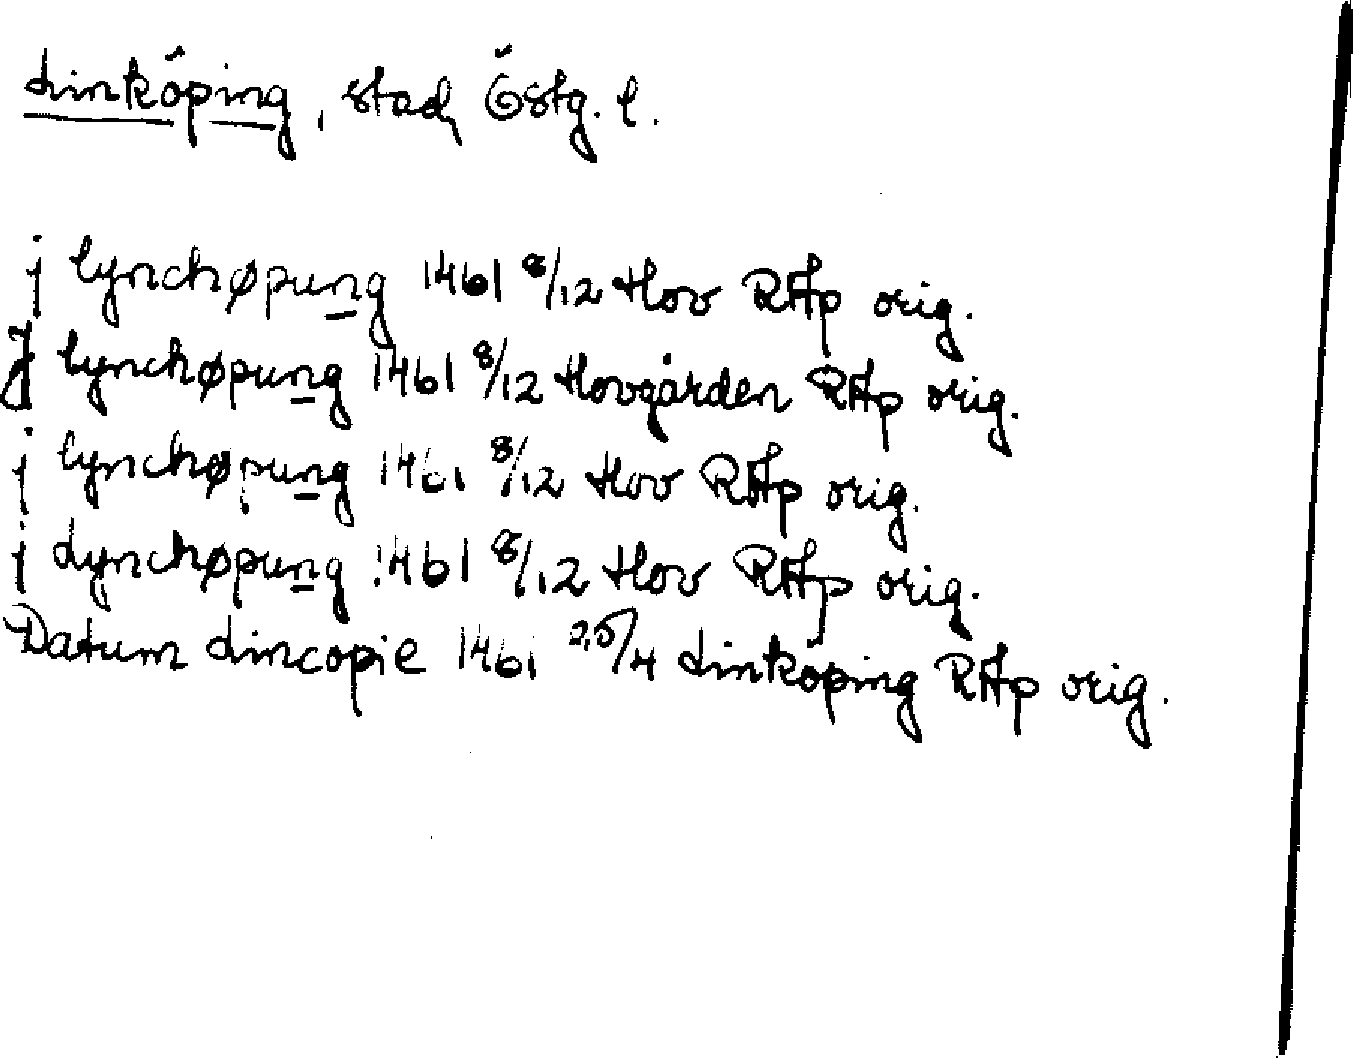 Linköping, stad, Östg. l.
j lynchøpung 1461 8/12 Hov RAp orig.
J lynchøpung 1461 8/12 Hovgården RAp orig.
j lynchøpung 1461 8/12 Hov RAp orig.
j Lynchøpung 1461 8/12 Hov RAp orig.
Datum Lincopie 1461 25/4 Linköping RAp orig.